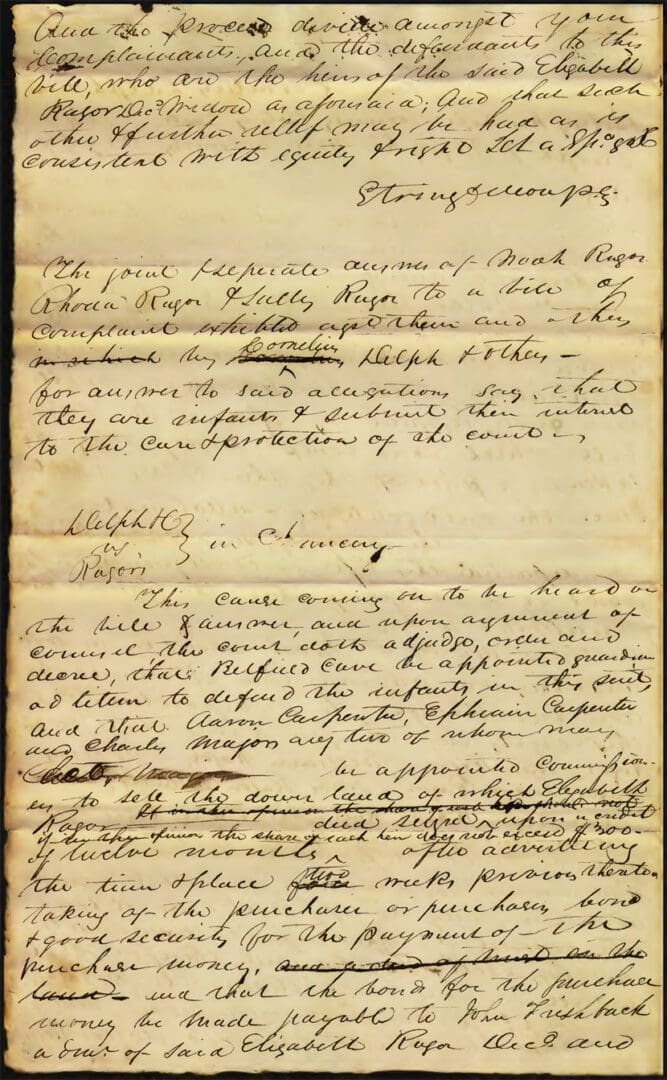 And the proceeds divided amongst your
Complainants, and the defendants to this
bill, who are the heirs of the said Elizabeth
Razor Decd Widow as aforesaid; And that such
other & further relief may be had as is
consistent with equity & right Let a Spa &c
String
The joint & seperate answer of Noah Razor
Rhoda Razor & Sally Razor to a bill of
complaint exhibited agst them and others
in which by Cornelius Delph & others —
for answer to said allegations say, that
they are infants & submit their interest
to the care & protection of the court
Delph &C
vs
Razors
in Chancery
This cause coming on to be heard on
the bill & answer, and upon argument of
counsel the court doth adjudge, order and
decree, that Belfield Cave be appointed guardian
ad litem to defend the infants in this suit,
and that Aaron Carpenter, Ephraim Carpenter
and Charles Majors any two of whom may
act, be appointed commission-
ers to sell the dower land of which Elizabeth
Razor died seized, upon a credit
if in their opinion the share of each heir does not exceed $300-
of twelve months after advertising
the time & place two weeks previous thereto-
taking of the purchaser or purchasers bond
& good security for the payment of the
purchase money, and a deed of trust on the
land and that the bonds for the purchase
money be made payable to John Fishback
admr. of said Elizabeth Razor Decd. and